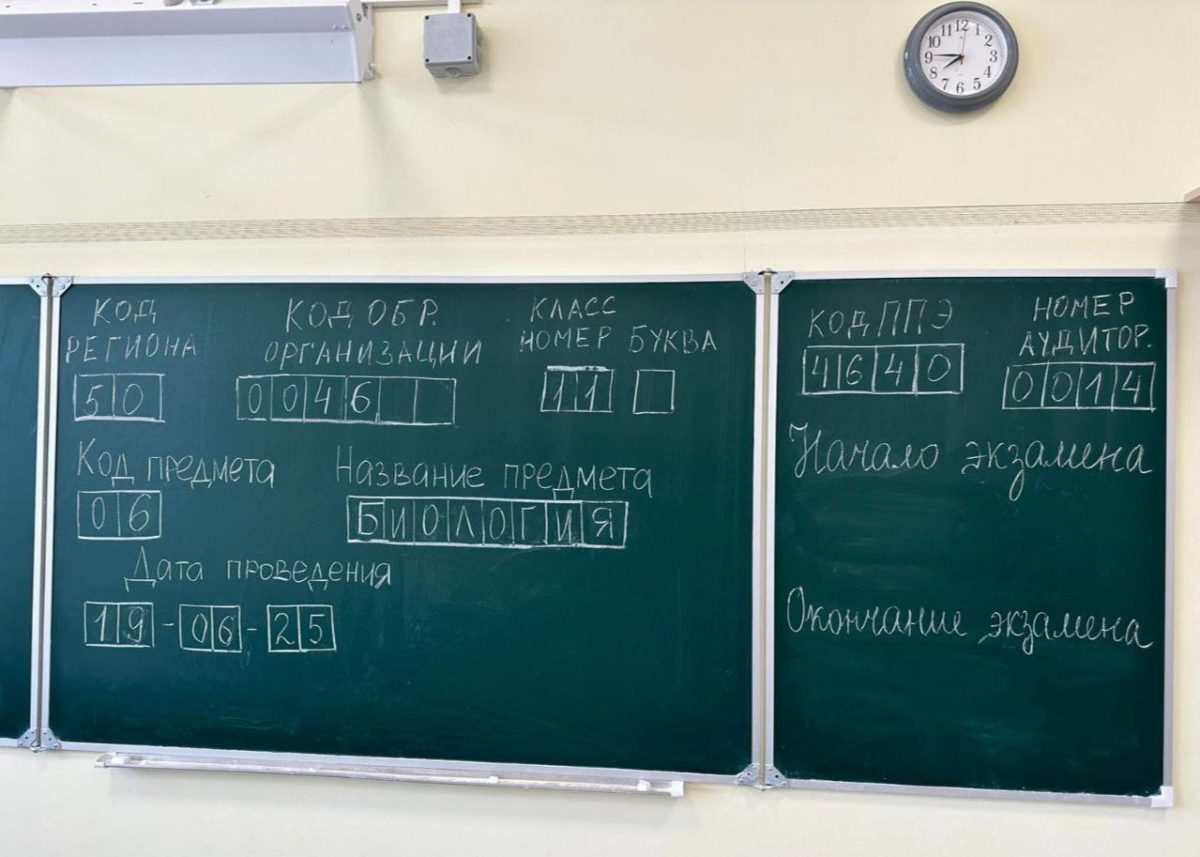 КОД
РЕГИОНА
50
КОД ОБР.
ОРГАНИЗАЦИИ
0046
КЛАСС
НОМЕР БУКВА
11
Код предмета
06
Название предмета
БИОЛОГИЯ
Дата проведения
19-06-25
КОД ППЭ
4640
НОМЕР
АУДИТОР.
0014
Начало экзамена
Окончание экзамена
12
1
2
3
4
5
6
7
8
9
10
11